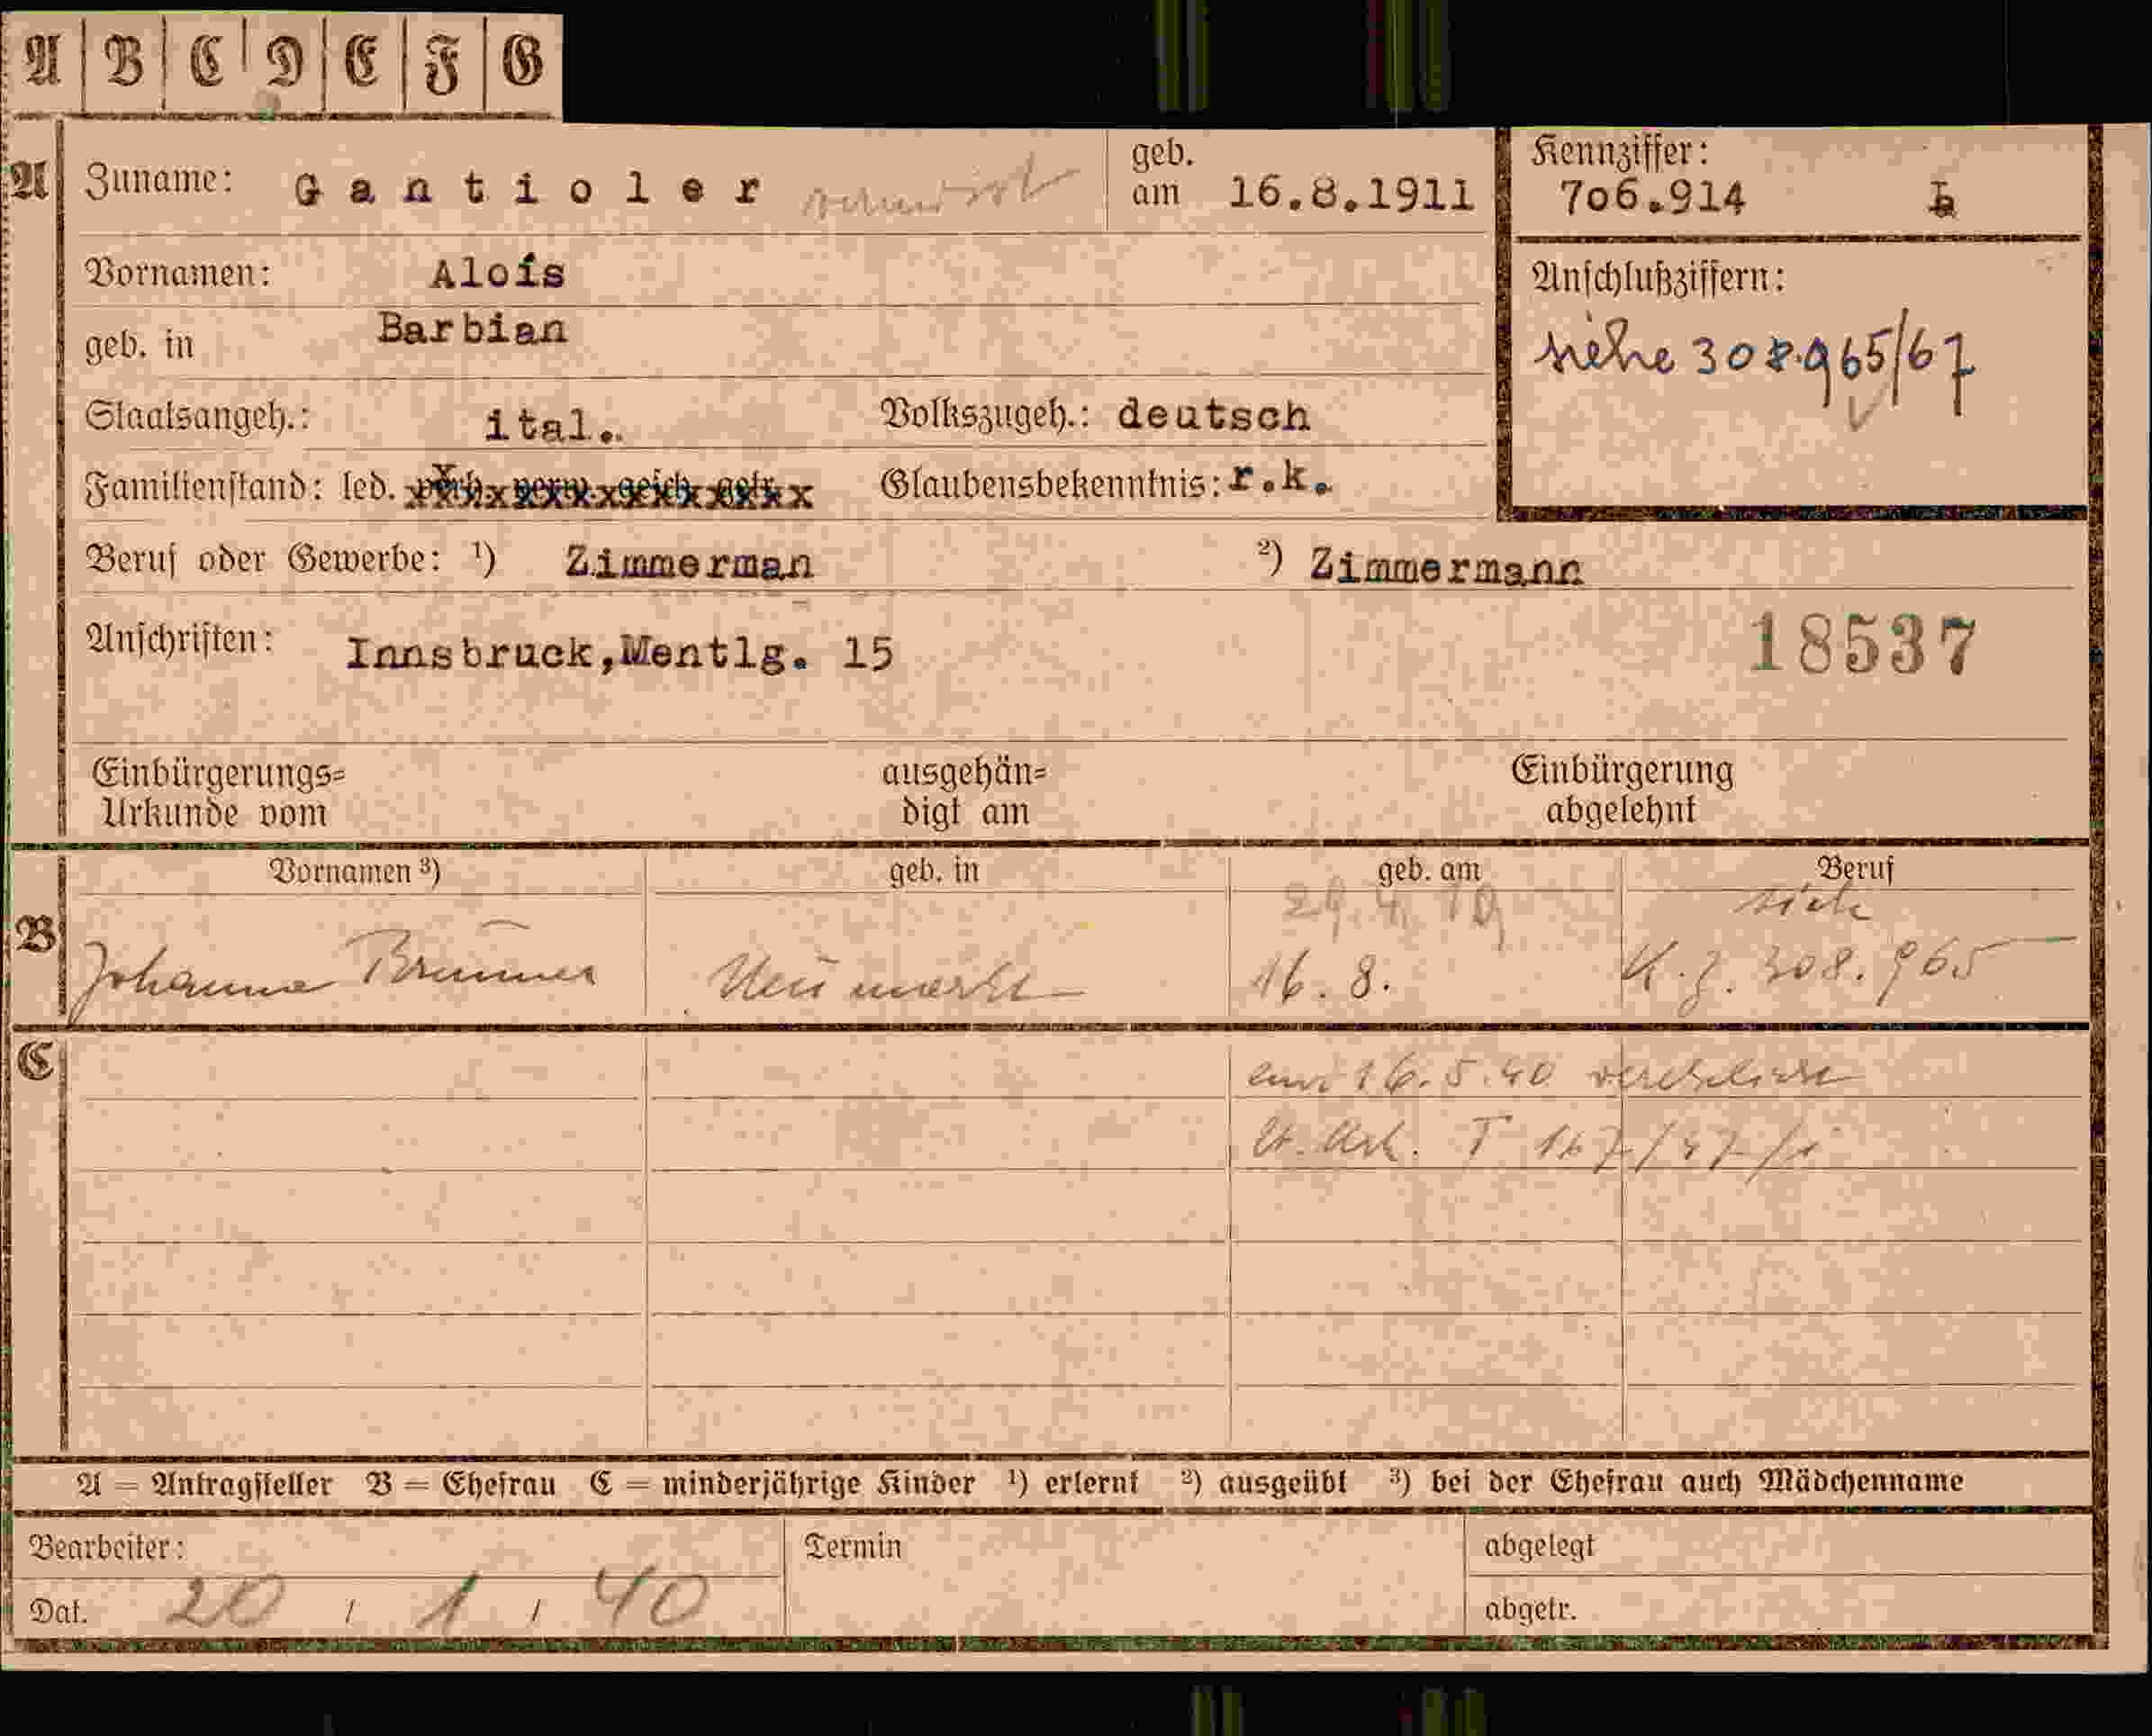 A B C D E F G
A Zuname: Gantioler geb. am 16.8.1911
Kennziffer: 7o6.914
Vornamen: Alois
Anschlußziffern:
siehe 308.965/67
geb. in Barbian
Staatsangeh.: ital. Volkszugeh.: deutsch
Familienstand: led. verh. verw. gesch. getr. Glaubensbekenntnis: r.k.
Beruf oder Gewerbe: ¹) Zimmerman ²) Zimmermann
Anschriften: Innsbruck,Mentlg. 15
18537
Einbürgerungs= ausgehän= Einbürgerung
Urkunde vom digt am abgelehnt
Vornamen ³) geb. in geb. am Beruf
29.4.19 siehe
B Johanna Brunner Neumarkt 16. 8. K.z. 308.965
C
16.5.40 verehelicht
T 167/47/i
A = Antragsteller B = Ehefrau C = minderjährige Kinder ¹) erlernt ²) ausgeübt ³) bei der Ehefrau auch Mädchenname
Bearbeiter: Termin abgelegt
Dat. 20 / 1 / 40 abgetr.